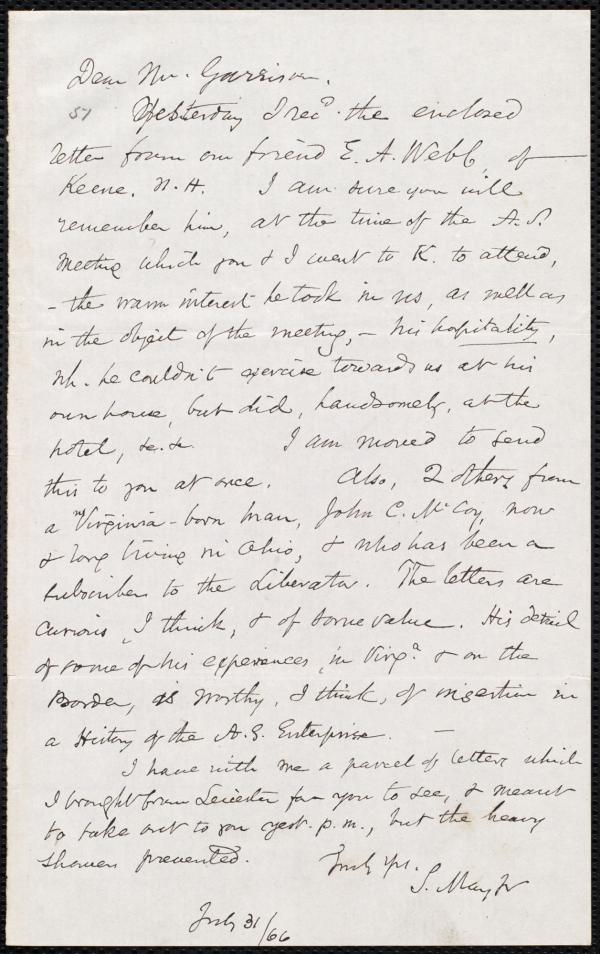 Dear Mr. Garrison.
51 Yesterday I recd. the enclosed
letter from our friend E. A. Webb, of
Keene, N. H. I am sure you will
remember him, at the time of the A. S.
Meeting which you & I went to K. to attend,
- the warm interest he took in us, as well as
in the object of the meeting, - his hospitality,
wh. he couldn't exercise towards us at his
own house, but did, handsomely, at the
hotel, &c. &c. I am moved to send
this to you at once. Also, 2 others from
a Virginia-born man, John C. McCoy, now
& long living in Ohio, & who has been a
subscriber to the Liberator. The letters are
curious, I think, & of some value. His detail
of some of his experiences, in Virga. & on the
Border, is worthy, I think, of insertion in
a History of the A. S. Enterprise. —
I have with me a parcel of letters which
I brought from Leicester for you to see, & meant
to take out to you yest. p.m., but the heavy
showers prevented. Truly yrs.
S. May Jr
July 31/66